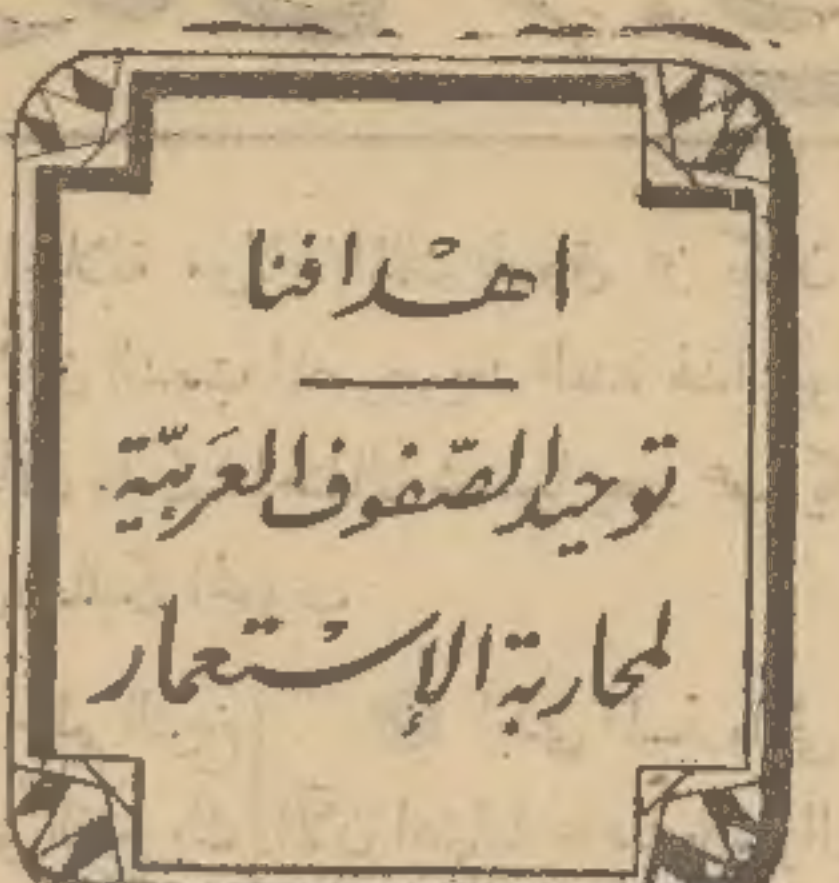 اهْدافنا
توحيد الصّفوف العَربيّة
لمحاربة الإسْتعمار